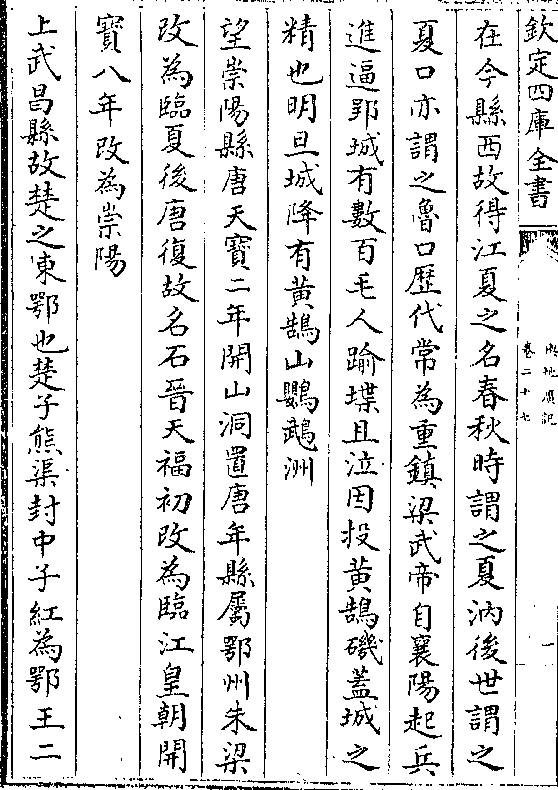 欽定四庫全書
輿地廣記
卷二十七
一
在今縣西故得江夏之名春秋時謂之夏汭後世謂之
夏口亦謂之魯口歴代常為重鎮梁武帝自襄陽起兵
進逼郢城有數百毛人踰堞且泣因投黄鵠磯蓋城之
精也明旦城降有黄鵠山鸚鵡洲
望崇陽縣唐天寳二年開山洞置唐年縣屬鄂州朱梁
改為臨夏後唐復故名石晉天福初改為臨江皇朝開
寳八年改為崇陽
上武昌縣故楚之東鄂也楚子熊渠封中子紅為鄂王二